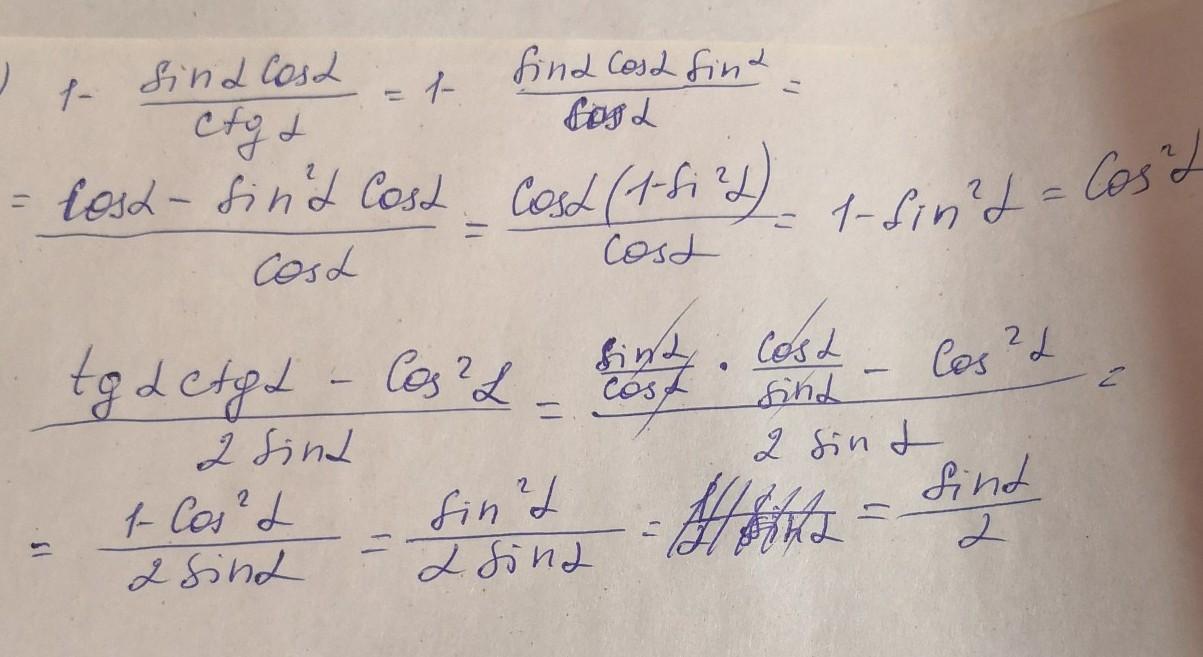 ) 1 - sinα cosα / ctgα = 1 - sinα cosα sinα / cosα =
= cosα - sin²α cosα / cosα = cosα (1 - si²α) / cosα = 1 - sin²α = cos²α
tgα ctgα - cos²α / 2 sinα = sinα / cosα · cosα / sinα - cos²α / 2 sinα =
= 1 - cos²α / 2 sinα = sin²α / 2 sinα = = sinα / 2